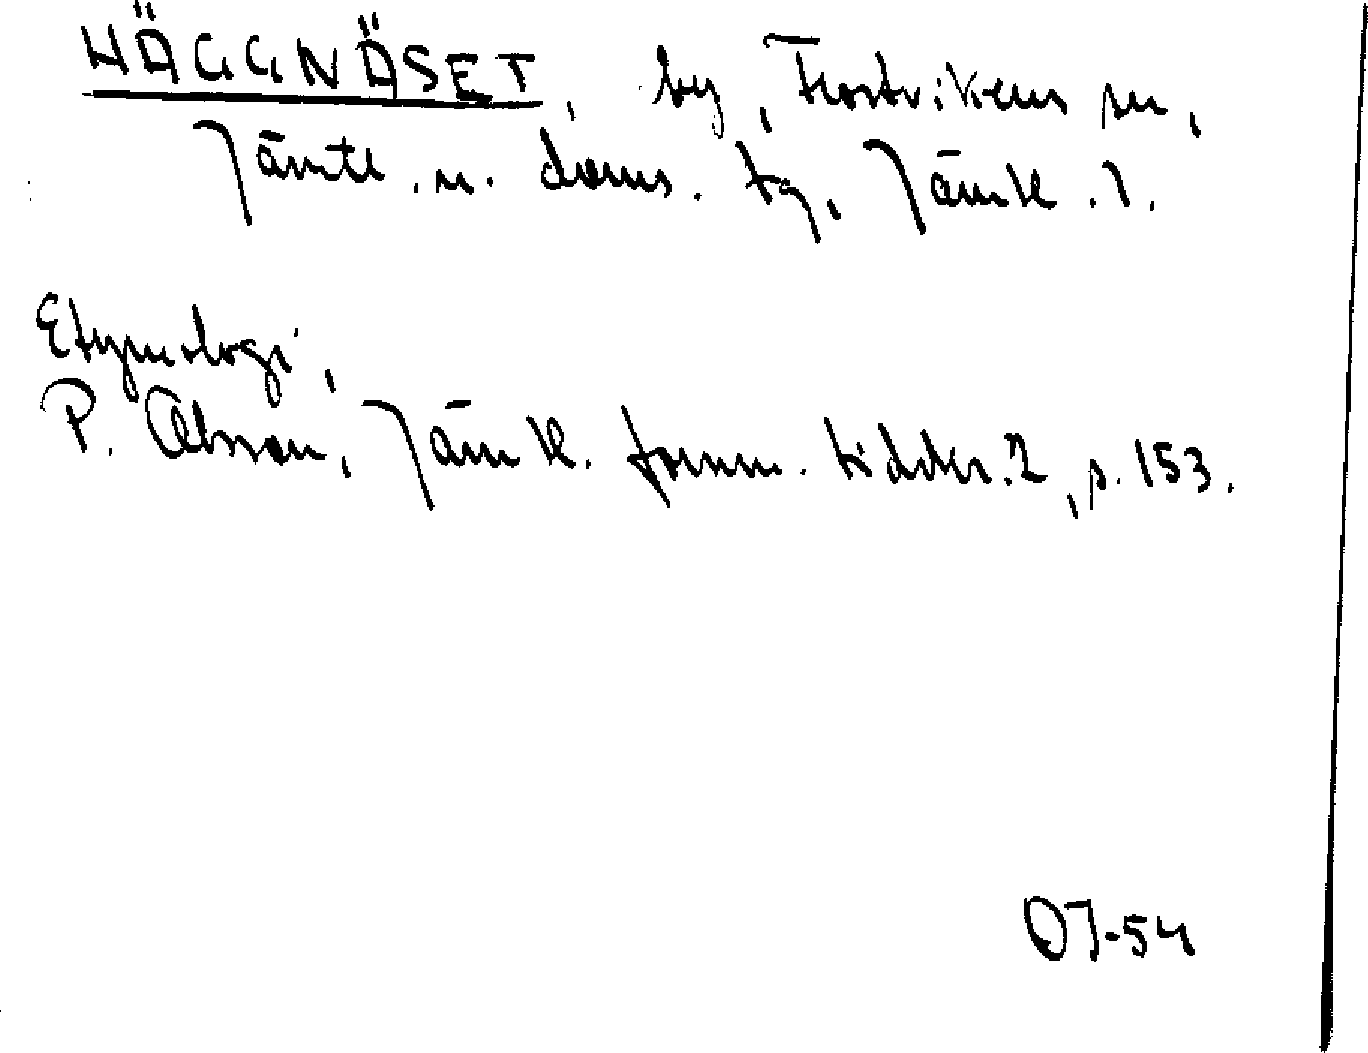 HÄGGNÄSET, by, Frostvikens sn,
Jämtl. n. doms. tg, Jämtl. l.
Etymologi,
P. Olsson, Jämtl. fornm. tidskr. 2, s. 153.
OJ-54